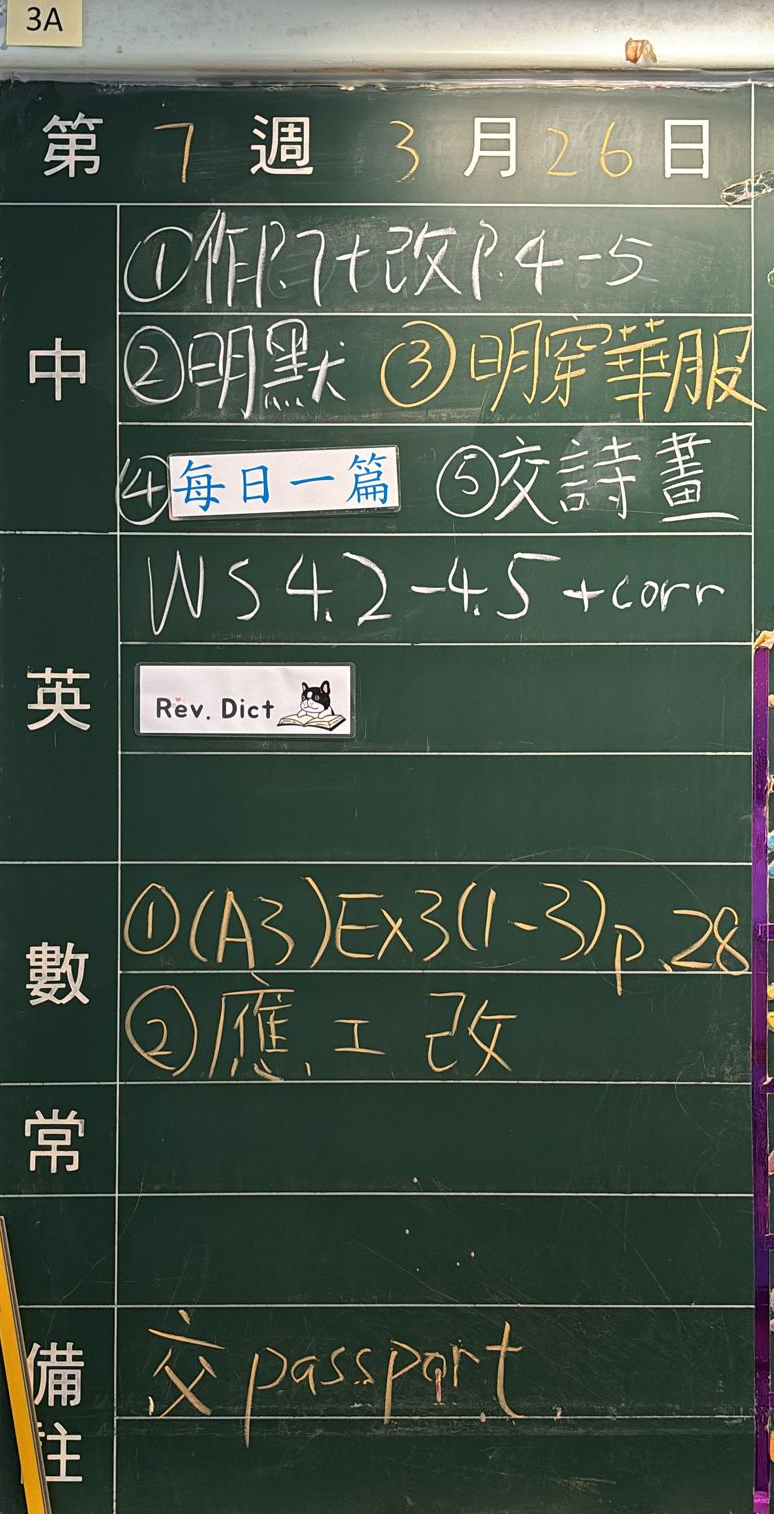 3A
第 7 週 3 月 26 日
中
①作P.7+改P.4-5
②明默 ③明穿華服
④每日一篇 ⑤交詩畫
英
WS 4.2-4.5 +corr
Rev. Dict
數
①(A3)Ex3(1-3)p.28
②應.工 改
常
備註
交 passport.